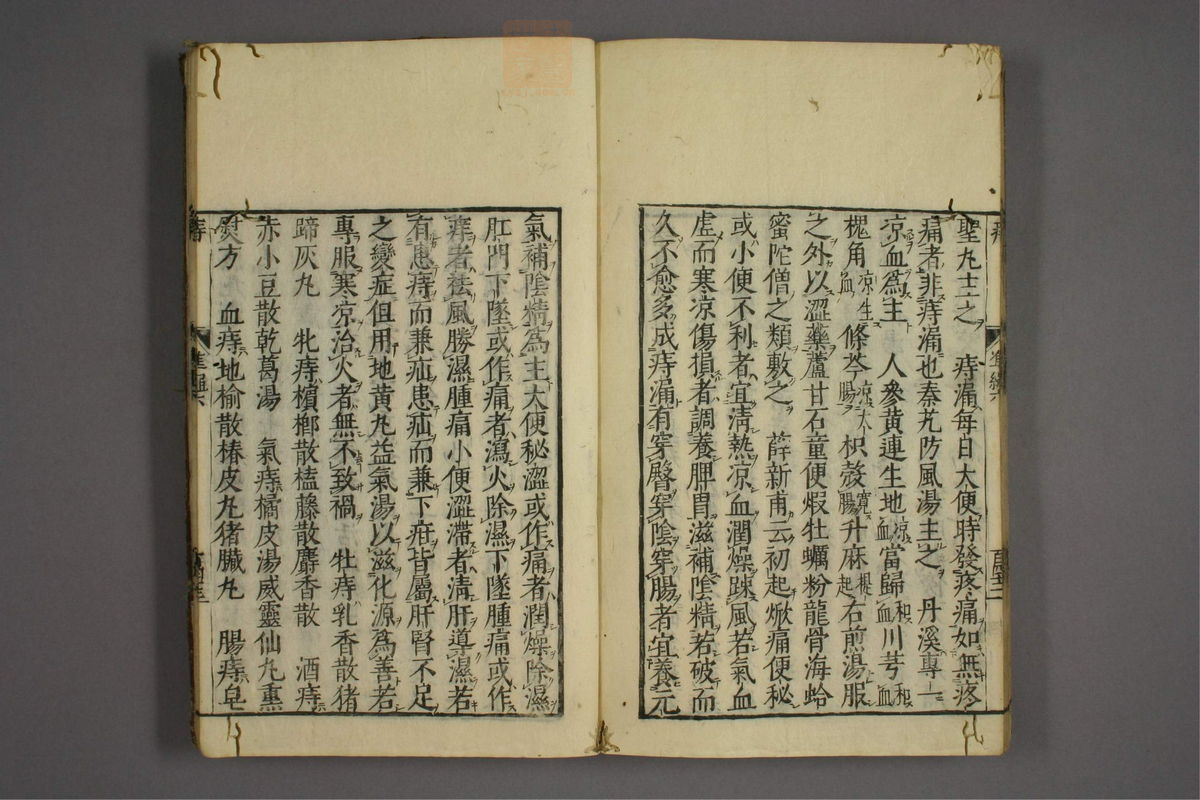 聖丸主之　痔漏每日大便時發疼痛如無疼
痛者非痔漏也秦艽防風湯主之　丹溪專一
凉血爲主　人參黃連生地凉血當歸和血川芎和血
槐角凉生血條芩凉大腸枳殼寬腸升麻提起右煎湯服
之外以澀藥蘆甘石童便煆牡蠣粉龍骨海蛤
蜜陀僧之類敷之　薛新甫云初起焮痛便秘
或小便不利者宜清熱凉血潤燥踈風若氣血
虛而寒凉傷損者調養脾胃滋補陰精若破而
久不愈多成痔漏有穿臀穿陰穿腸者宜養元
氣補陰精爲主大便秘澀或作痛者潤燥除濕
肛門下墜或作痛者瀉火除濕下墜腫痛或作
痒者祛風勝濕腫痛小便澀滯者清肝導濕若
有患痔而兼疝患疝而兼下疳皆屬肝腎不足
之變症但用地黃丸益氣湯以滋化源爲善若
專服寒凉治火者無不致禍　牡痔乳香散猪
蹄灰丸　牝痔檳榔散榼藤散麝香散　酒痔
赤小豆散乾葛湯　氣痔橘皮湯威靈仙丸熏
熨方　血痔地榆散椿皮丸猪臟丸　腸痔皂